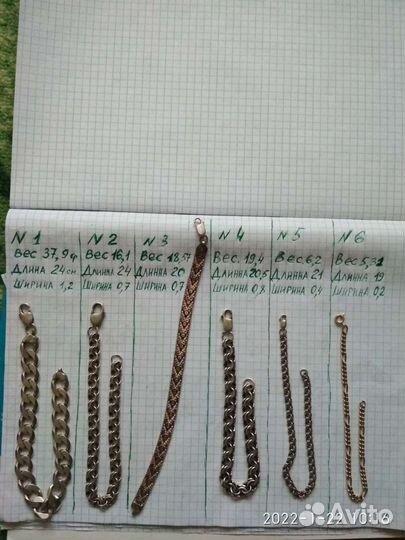 N 1
Вес 37,9 г
Длина 24 см
Ширина 1,2
N 2
Вес 16,1
Длинна 24
Ширина 0,7
N 3
Вес 18,57
Длинна 20
Ширина 0,7
N 4
Вес. 19,4
Длинна 20,5
Ширина 0,8
N 5
Вес. 6,2
Длинна 21
Ширина 0,4
N 6
Вес 5,31
Длинна 19
Ширина 0,2
Avito